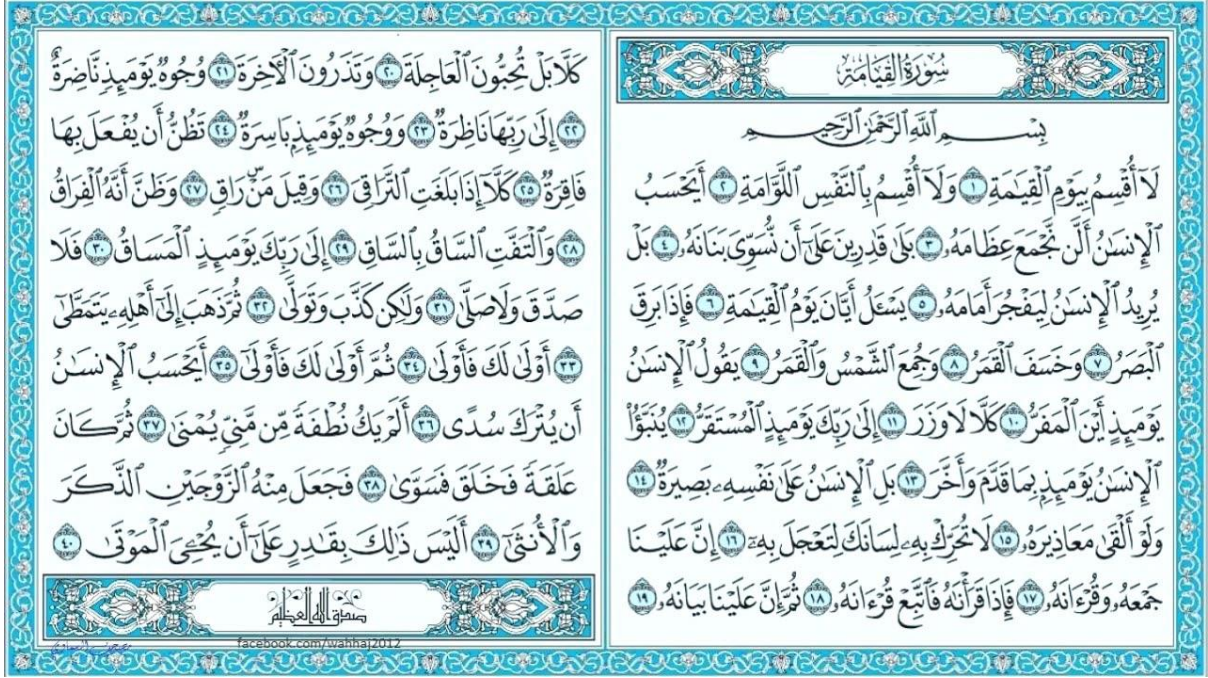 سُورَةُ القِيَامَةِ
بِسْمِ ٱللَّهِ ٱلرَّحْمَٰنِ ٱلرَّحِيمِ
لَآ أُقْسِمُ بِيَوْمِ ٱلْقِيَٰمَةِ ١ وَلَآ أُقْسِمُ بِٱلنَّفْسِ ٱللَّوَّامَةِ ٢ أَيَحْسَبُ
ٱلْإِنسَٰنُ أَلَّن نَّجْمَعَ عِظَامَهُۥ ٣ بَلَىٰ قَٰدِرِينَ عَلَىٰٓ أَن نُّسَوِّىَ بَنَانَهُۥ ٤ بَلْ
يُرِيدُ ٱلْإِنسَٰنُ لِيَفْجُرَ أَمَامَهُۥ ٥ يَسْـَٔلُ أَيَّانَ يَوْمُ ٱلْقِيَٰمَةِ ٦ فَإِذَا بَرِقَ
ٱلْبَصَرُ ٧ وَخَسَفَ ٱلْقَمَرُ ٨ وَجُمِعَ ٱلشَّمْسُ وَٱلْقَمَرُ ٩ يَقُولُ ٱلْإِنسَٰنُ
يَوْمَئِذٍ أَيْنَ ٱلْمَفَرُّ ١٠ كَلَّا لَا وَزَرَ ١١ إِلَىٰ رَبِّكَ يَوْمَئِذٍ ٱلْمُسْتَقَرُّ ١٢ يُنَبَّؤُا۟
ٱلْإِنسَٰنُ يَوْمَئِذٍۭ بِمَا قَدَّمَ وَأَخَّرَ ١٣ بَلِ ٱلْإِنسَٰنُ عَلَىٰ نَفْسِهِۦ بَصِيرَةٌ ١٤
وَلَوْ أَلْقَىٰ مَعَاذِيرَهُۥ ١٥ لَا تُحَرِّكْ بِهِۦ لِسَانَكَ لِتَعْجَلَ بِهِۦٓ ١٦ إِنَّ عَلَيْنَا
جَمْعَهُۥ وَقُرْءَانَهُۥ ١٧ فَإِذَا قَرَأْنَٰهُ فَٱتَّبِعْ قُرْءَانَهُۥ ١٨ ثُمَّ إِنَّ عَلَيْنَا بَيَانَهُۥ ١٩
كَلَّا بَلْ تُحِبُّونَ ٱلْعَاجِلَةَ ٢٠ وَتَذَرُونَ ٱلْءَاخِرَةَ ٢١ وُجُوهٌ يَوْمَئِذٍ نَّاضِرَةٌ
٢٢ إِلَىٰ رَبِّهَا نَاظِرَةٌ ٢٣ وَوُجُوهٌ يَوْمَئِذٍۭ بَاسِرَةٌ ٢٤ تَظُنُّ أَن يُفْعَلَ بِهَا
فَاقِرَةٌ ٢٥ كَلَّآ إِذَا بَلَغَتِ ٱلتَّرَاقِىَ ٢٦ وَقِيلَ مَنْ ۜ رَاقٍ ٢٧ وَظَنَّ أَنَّهُ ٱلْفِرَاقُ
٢٨ وَٱلْتَفَّتِ ٱلسَّاقُ بِٱلسَّاقِ ٢٩ إِلَىٰ رَبِّكَ يَوْمَئِذٍ ٱلْمَسَاقُ ٣٠ فَلَا
صَدَّقَ وَلَا صَلَّىٰ ٣١ وَلَٰكِن كَذَّبَ وَتَوَلَّىٰ ٣٢ ثُمَّ ذَهَبَ إِلَىٰٓ أَهْلِهِۦ يَتَمَطَّىٰٓ
٣٣ أَوْلَىٰ لَكَ فَأَوْلَىٰ ٣٤ ثُمَّ أَوْلَىٰ لَكَ فَأَوْلَىٰٓ ٣٥ أَيَحْسَبُ ٱلْإِنسَٰنُ
أَن يُتْرَكَ سُدًى ٣٦ أَلَمْ يَكُ نُطْفَةً مِّن مَّنِىٍّ يُمْنَىٰ ٣٧ ثُمَّ كَانَ
عَلَقَةً فَخَلَقَ فَسَوَّىٰ ٣٨ فَجَعَلَ مِنْهُ ٱلزَّوْجَيْنِ ٱلذَّكَرَ
وَٱلْأُنثَىٰٓ ٣٩ أَلَيْسَ ذَٰلِكَ بِقَٰدِرٍ عَلَىٰٓ أَن يُحْـِۧىَ ٱلْمَوْتَىٰ ٤٠
صدق الله العظيم
facebook.com/wahhaj2012